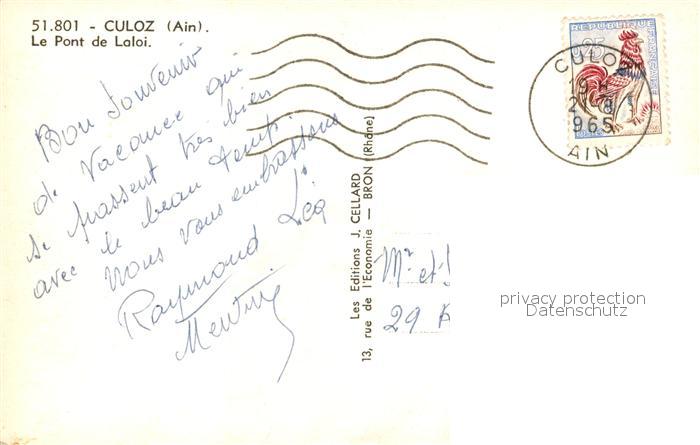 51.801 - CULOZ (Ain).
Le Pont de Laloi.
Bon Souvenir
de Vacance qui
se passent très bien
avec le beau temps
Nous vous embrassons
Raymond Léa
REPUBLIQUE FRANÇAISE
0,25
CULOZ
19 H
965
AIN
Les Editions J. CELLARD
13, rue de l'Economie — BRON (Rhône)
Mr et
29
privacy protection
Datenschutz